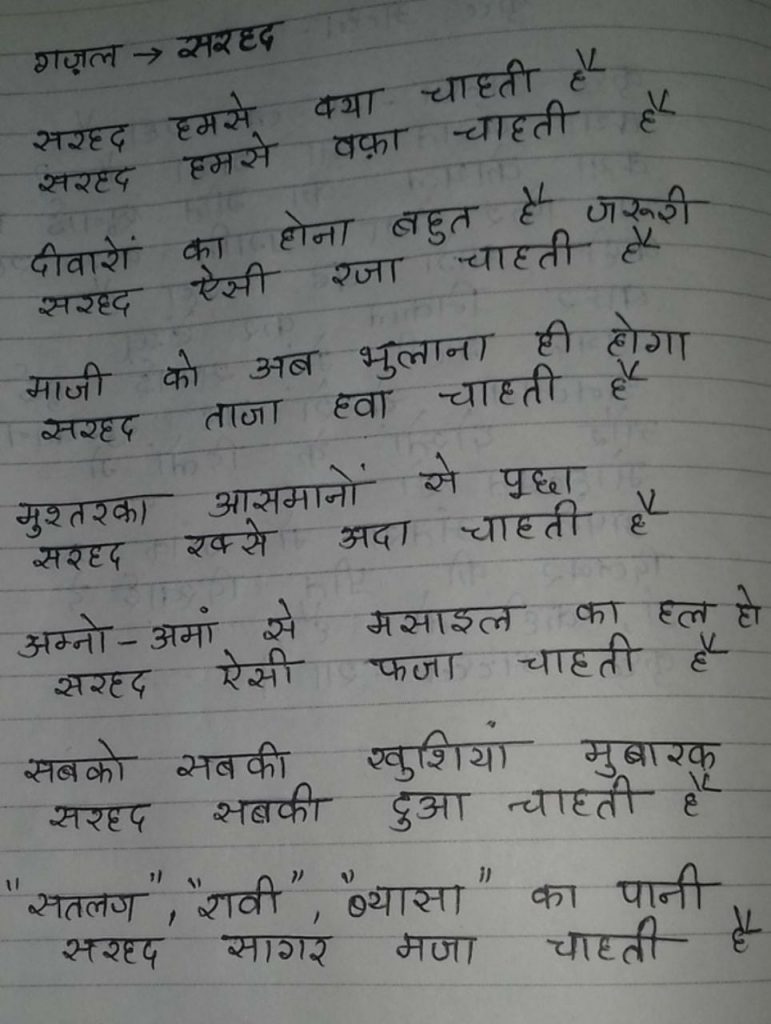 गज़ल → सरहद
सरहद हमसे क्या चाहती है
सरहद हमसे वफ़ा चाहती है
दीवारों का होना बहुत है जरूरी
सरहद ऐसी रजा चाहती है
माजी को अब भुलाना ही होगा
सरहद ताजा हवा चाहती है
मुश्तरका आसमानों से पुछा
सरहद रक्से अदा चाहती है
अम्नो-अमां से मसाइल का हल हो
सरहद ऐसी फजा चाहती है
सबको सबकी खुशियां मुबारक
सरहद सबकी दुआ चाहती है
"सतलज", "रावी", "ब्यासा" का पानी
सरहद सागर मजा चाहती है